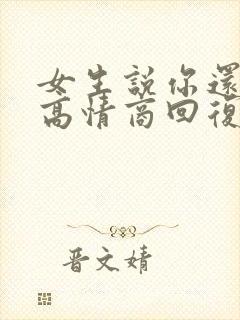 女生説你還
高情商回復
晋文婧